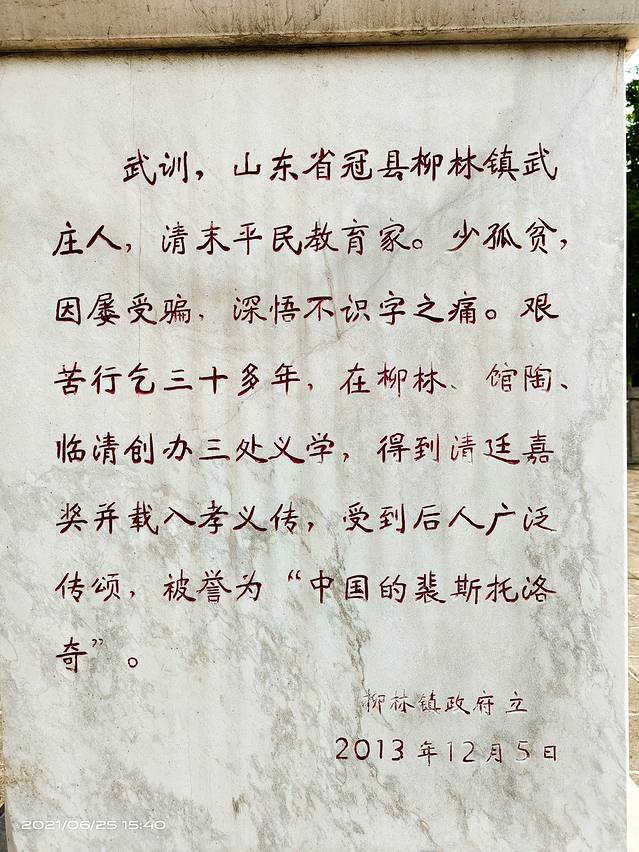 武训，山东省冠县柳林镇武
庄人，清末平民教育家。少孤贫，
因屡受骗，深悟不识字之痛。艰
苦行乞三十多年，在柳林、馆陶、
临清创办三处义学，得到清廷嘉
奖并载入孝义传，受到后人广泛
传颂，被誉为“中国的裴斯托洛
奇”。
柳林镇政府立
2013年12月5日
2021/06/25 15:40